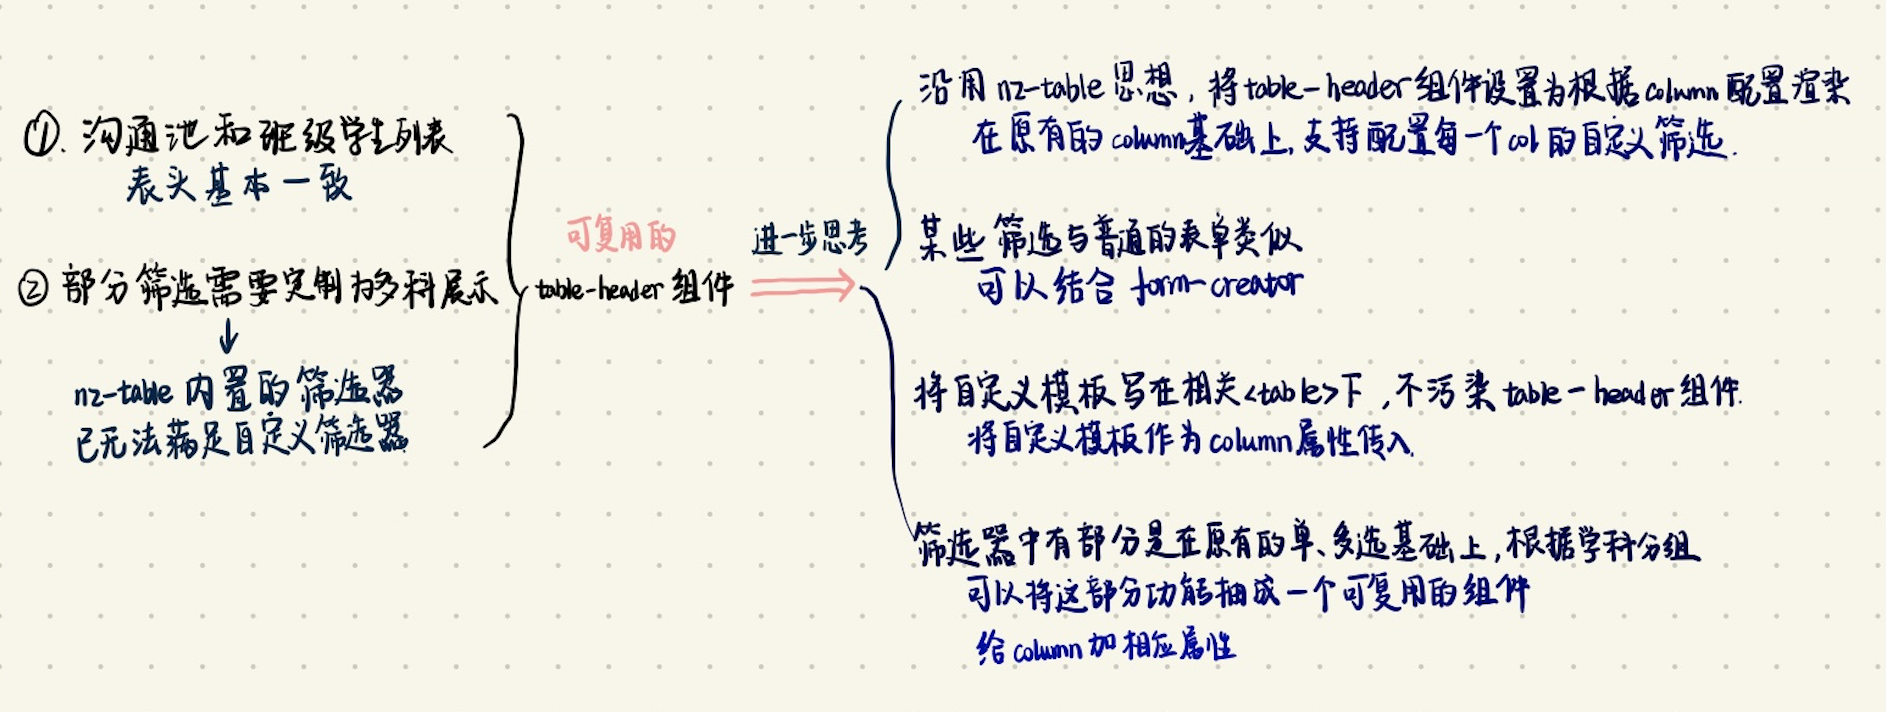 ①. 沟通池和班级学生列表
表头基本一致
② 部分筛选需要定制为多科展示
↓
nz-table 内置的筛选器
已无法满足自定义筛选器
可复用的
table-header 组件
进一步思考
沿用 nz-table 思想，将table-header组件设置为根据column配置渲染
在原有的column基础上，支持配置每一个col的自定义筛选.
某些筛选与普通的表单类似
可以结合 form-creator
将自定义模板写在相关<table>下，不污染table-header组件.
将自定义模板作为column属性传入.
筛选器中有部分是在原有的单、多选基础上，根据学科分组
可以将这部分功能抽成一个可复用的组件
给column加相应属性